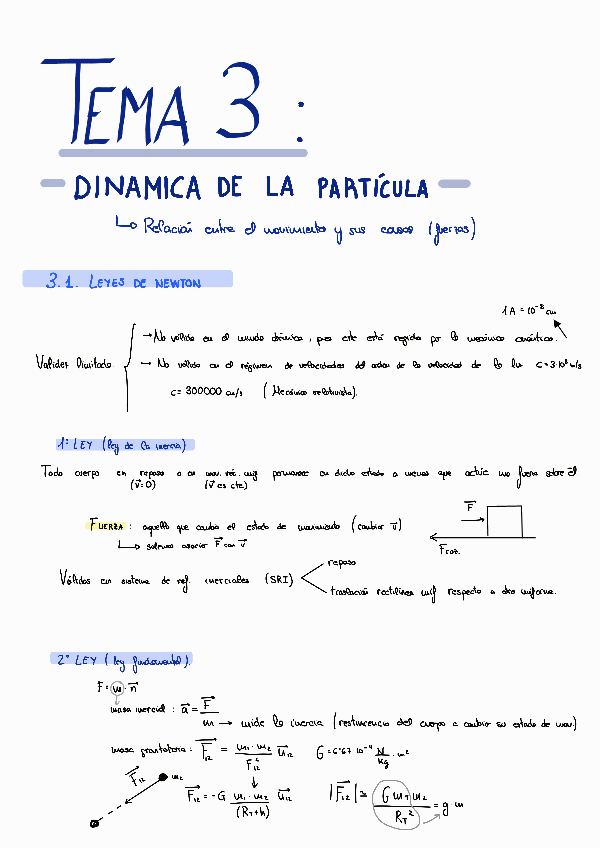 TEMA 3 :
DINAMICA DE LA PARTÍCULA
↳ Relación entre el movimiento y sus causas (fuerzas)
3.1. LEYES DE NEWTON
1 A = 10⁻⁸ cm
Validez limitada
→ No válido en el mundo atómico, pues este está regido por la mecánica cuántica.
→ No válido en el régimen de velocidades del orden de la velocidad de la luz c = 3·10⁸ m/s
c = 300000 km/s (Mecánica relativista).
1ª LEY (ley de la inercia)
Todo cuerpo en reposo o en mov. rec. unif permanece en dicho estado a menos que actúe una fuerza sobre él
(v̄=0) (v̄ es cte)
FUERZA : aquello que cambia el estado de movimiento (cambiar v̄)
↳ solemos asociar F̄ con v̄
F̄
Froz.
Válidas en sistema de ref. inerciales (SRI)
reposo
traslación rectilínea unif respecto a otro uniforme.
2ª LEY (ley fundamental).
F = m · ā
masa inercial : ā = F̄ / m → mide la inercia (resistencia del cuerpo a cambiar su estado de mov)
masa gravitatoria : F̄₁₂ = m₁ · m₂ / F₁₂² ū₁₂ G = 6'67 · 10⁻¹¹ N/kg · m²
F̄₁₂ m₂
F̄₁₂ = -G m₁ · m₂ / (R_T + h) ū₁₂ |F̄₁₂| = G m_T m₂ / R_T² = g m